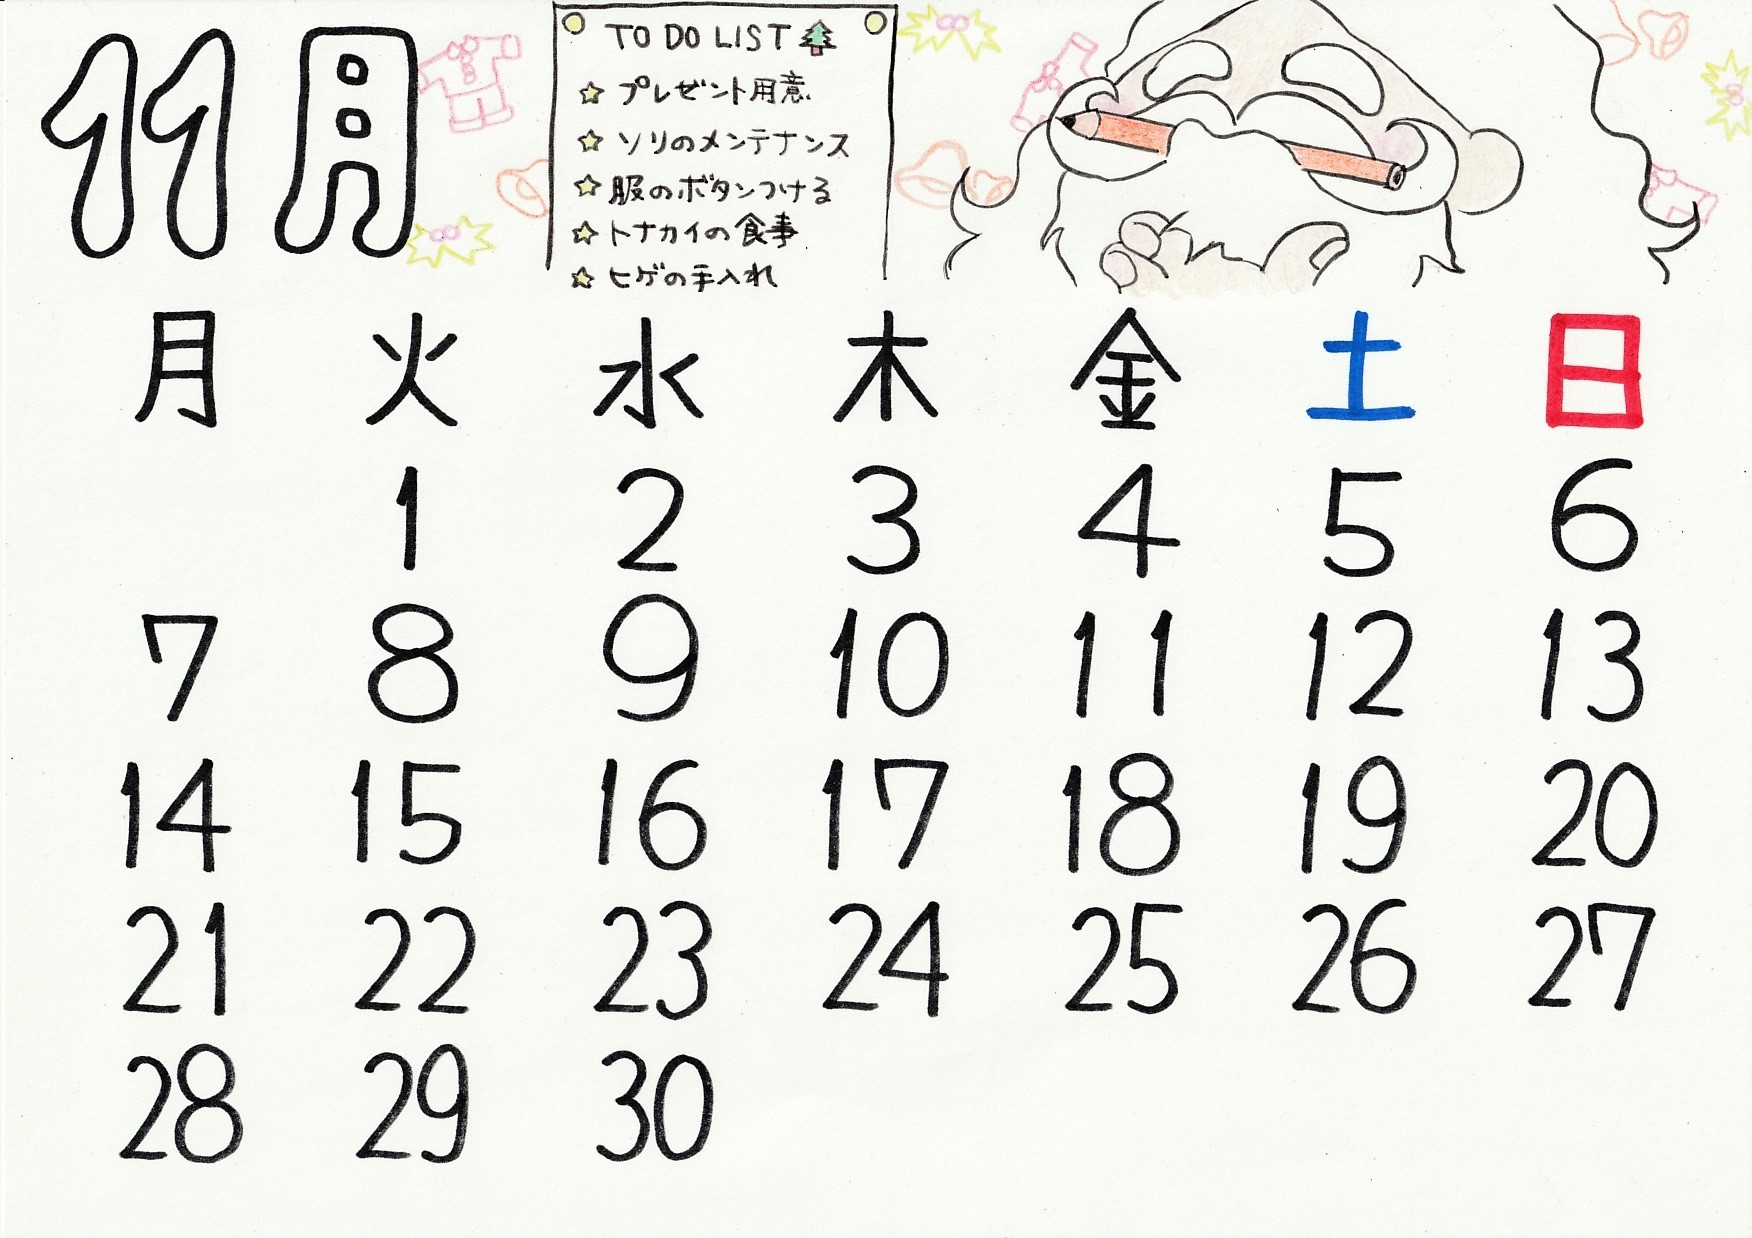 11月
TO DO LIST
プレゼント用意
ソリのメンテナンス
服のボタンつける
トナカイの食事
ヒゲの手入れ
月 火 水 木 金 土 日
1 2 3 4 5 6
7 8 9 10 11 12 13
14 15 16 17 18 19 20
21 22 23 24 25 26 27
28 29 30